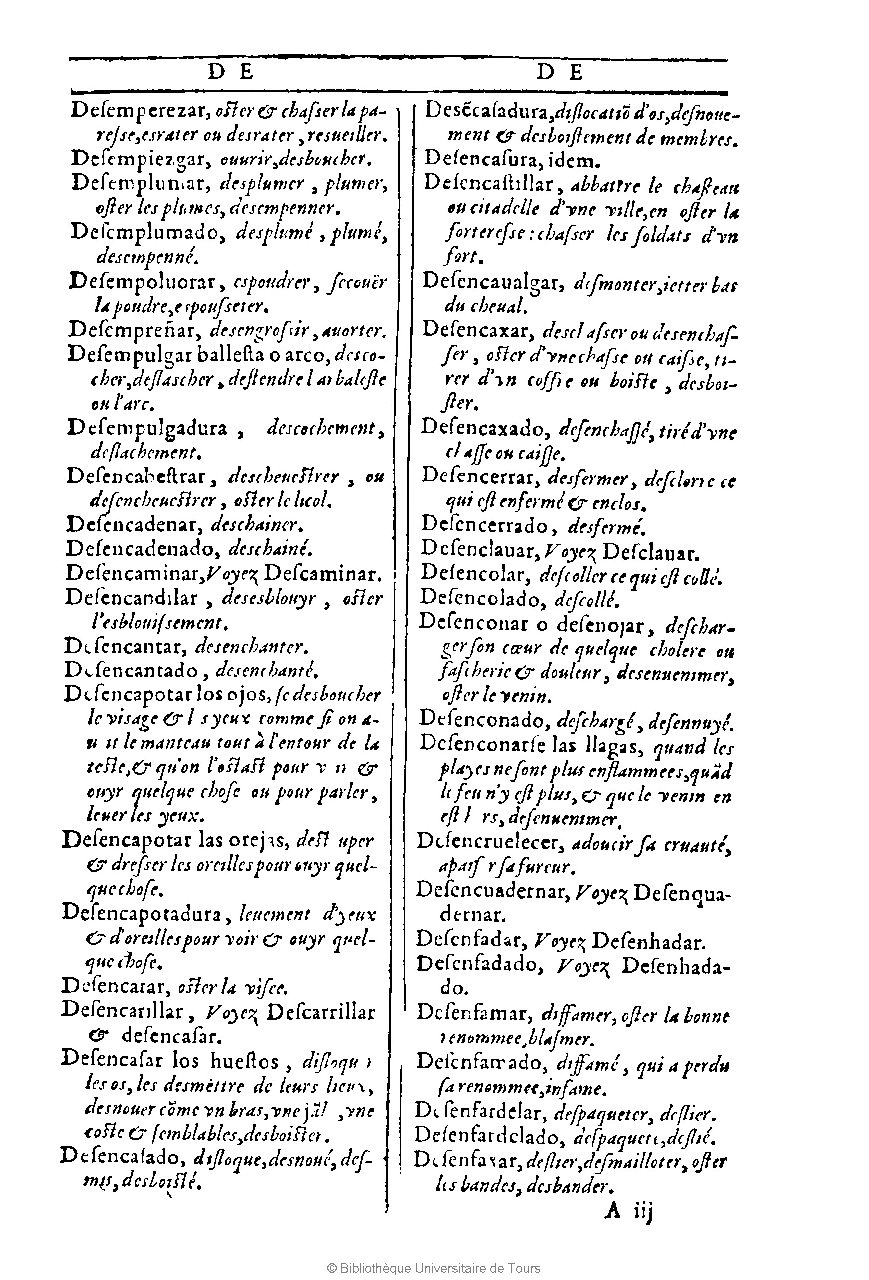 D E
D E
Deſemperezar, oſter & chaſſer la pa-
reſſe, esrater ou desrater, resueiller.
Deſempiezgar, ouurir, desboucher.
Deſemplumar, desplumer, plumer,
oſter les plumes, desempenner.
Deſemplumado, desplumé, plumé,
desempenné.
Deſempoluorar, espoudrer, ſecouër
la poudre, espouſſeter.
Deſempreñar, desengroſsir, auorter.
Deſempulgar balleſta o arco, desco-
cher, deſlascher, deſtendre l'arbaleſte
ou l'arc.
Deſempulgadura, descochement,
deſlachement.
Deſencabeſtrar, descheueſtrer, ou
deſencheueſtrer, oſter le licol.
Deſencadenar, deschainer.
Deſencadenado, deschainé.
Deſencaminar, Voyez Deſcaminar.
Deſencandilar, desesblouyr, oſter
l'esblouiſſement.
Deſencantar, desenchanter.
Deſencantado, desenchanté.
Deſencapotar los ojos, ſe desboucher
le viſage & les yeux comme ſi on a-
uoit le manteau tout à l'entour de la
teſte, & qu'on l'oſtaſt pour voir &
ouyr quelque choſe ou pour parler,
leuer les yeux.
Deſencapotar las orejas, deſtouper
& dreſſer les oreilles pour ouyr quel-
que choſe.
Deſencapotadura, leuement d'yeux
& d'oreilles pour voir & ouyr quel-
que choſe.
Deſencarar, oſter la viſee.
Deſencarillar, Voyez Deſcarrillar
& deſencaſar.
Deſencaſar los hueſſos, diſloquer
les os, les desmettre de leurs lieux,
desnouer cõme vn bras, vne jãbe, vne
coſte & ſemblables, desboiſter.
Deſencaſado, diſloque, desnoué, deſ-
mis, desboiſté.
Desẽcaſadura, diſlocatiõ d'os, deſnoue-
ment & desboiſtement de membres.
Deſencaſura, idem.
Deſencaſtillar, abbattre le chaſteau
ou citadelle d'vne ville, en oſter la
forterеſſe: chaſſer les ſoldats d'vn
fort.
Deſencaualgar, deſmonter, ietter bas
du cheual.
Deſencaxar, deschaſſer ou desenchaſ-
ſer, oſter d'vne chaſſe ou caiſſe, ti-
rer d'vn coffre ou boiſte, desboi-
ſter.
Deſencaxado, deſenchaſſé, tiré d'vne
chaſſe ou caiſſe.
Deſencerrar, desfermer, deſclorre ce
qui eſt enfermé & enclos.
Deſencerrado, desfermé.
Deſenclauar, Voyez Deſclauar.
Deſencolar, deſcoller ce qui eſt collé.
Deſencolado, deſcollé.
Deſenconar o deſenojar, deſchar-
ger ſon cœur de quelque cholere ou
faſcherie & douleur, desenuenimer,
oſter le venin.
Deſenconado, deſchargé, deſennuyé.
Deſenconarſe las llagas, quand les
playes ne ſont plus enflammees, quãd
le feu n'y eſt plus, & que le venin en
eſt hors, deſenuenimer.
Deſencruelecer, adoucir ſa cruauté,
apaiſer ſa fureur.
Deſencuadernar, Voyez Deſenqua-
dernar.
Deſenfadar, Voyez Deſenhadar.
Deſenfadado, Voyez Deſenhada-
do.
Deſenfamar, diffamer, oſter la bonne
renommee, blaſmer.
Deſenfamado, diffamé, qui a perdu
ſa renommee, infame.
Deſenfardelar, deſpaqueter, deſlier.
Deſenfardelado, deſpaqueté, deſlié.
Deſenfaxar, deſlier, deſmailloter, oſter
les bandes, desbander.
A iij
© Bibliothèque Universitaire de Tours